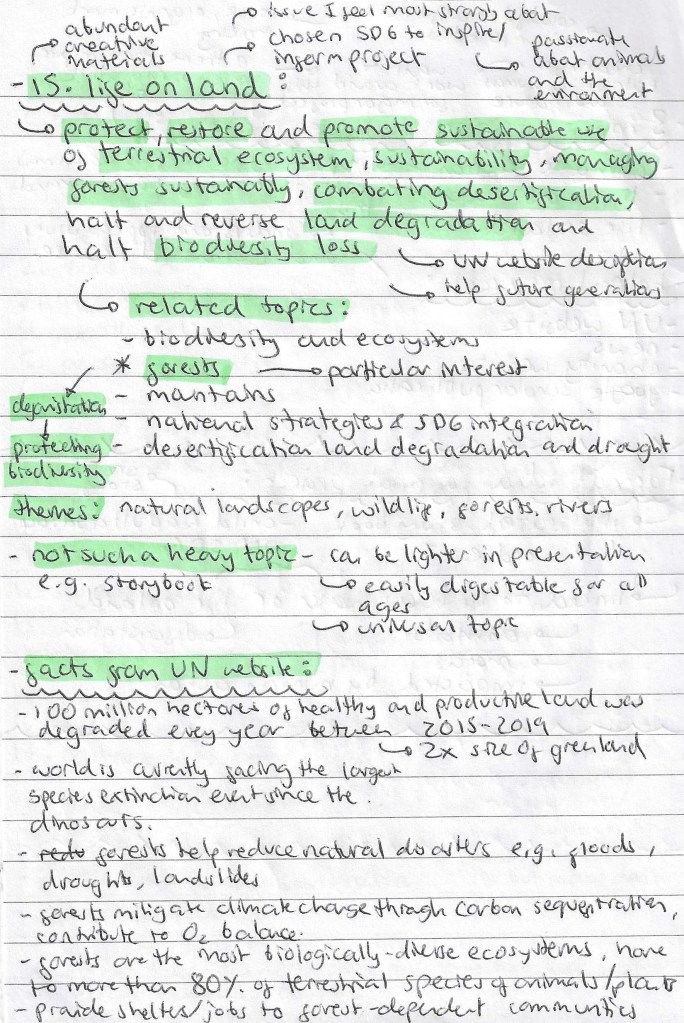 abundant
creative
materials
issue I feel most strongly about
chosen SDG to inspire/
inform project
passionate
about animals
and the
environment
- 15. life on land :
protect, restore and promote sustainable use
of terrestrial ecosystem, sustainability, managing
forests sustainably, combating desertification,
halt and reverse land degradation and
halt biodiversity loss
UN website description
help future generations
related topics:
- biodiversity and ecosystems
* forests → particular interest
deforistation
protecting
biodiversity
- mantains
- national strategies & SDG integration
- desertification land degradation and drought
themes: natural landscapes, wildlife, forests, rivers
- not such a heavy topic - can be lighter in presentation
e.g. storybook
easily digestable for all
ages
universal topic
- facts from UN website:
- 100 million hectares of healthy and productive land was
degraded every year between 2015-2019
2x size of greenland
- world is currently facing the largest
species extinction event since the
dinosaurs.
- forests help reduce natural disasters e.g. floods,
droughts, landslides
- forests mitigate climate change through carbon sequestration,
contribute to O2 balance.
- forests are the most biologically-diverse ecosystems, home
to more than 80% of terrestrial species of animals/plants
- provide shelter/jobs to forest-dependent communities